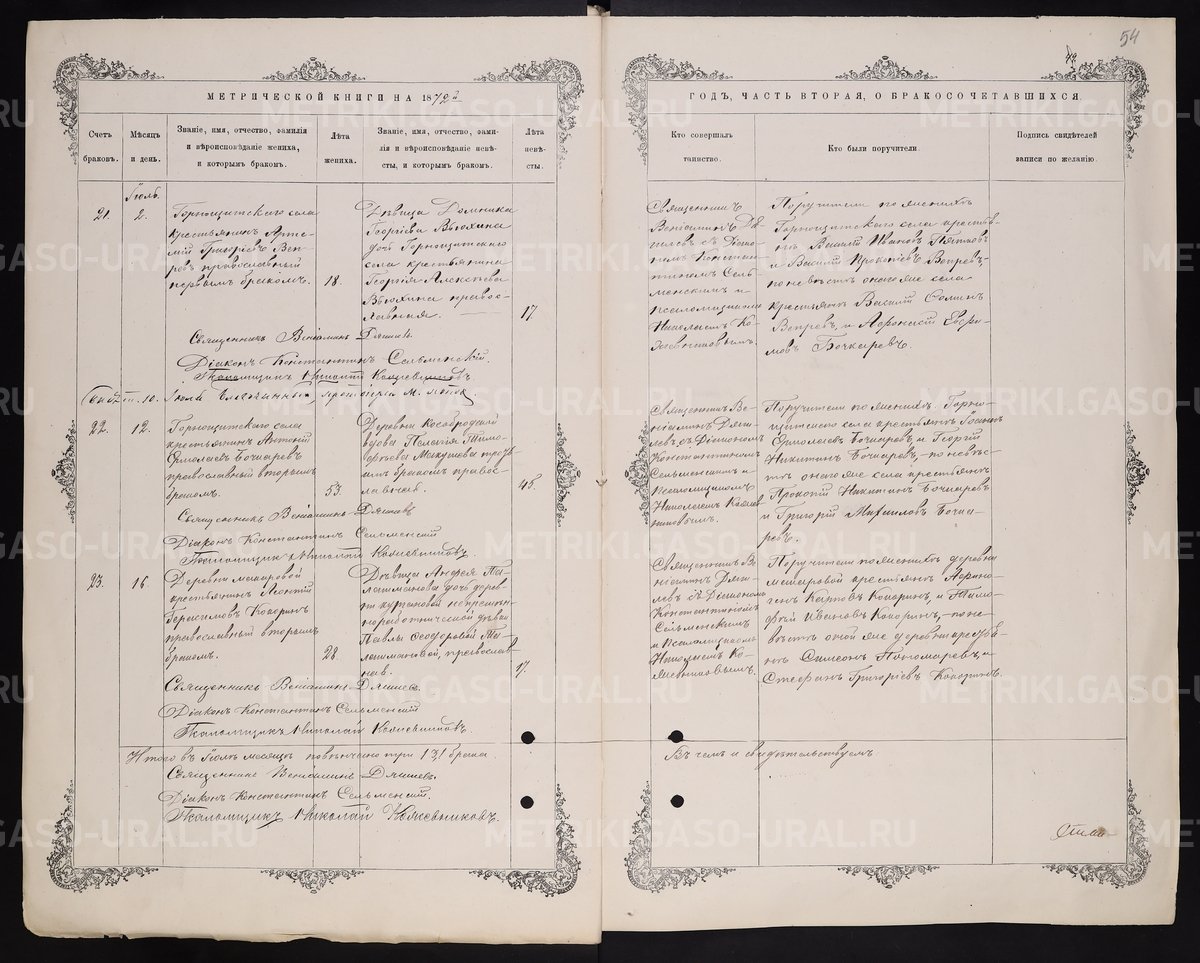 54
МЕТРИЧЕСКОЙ КНИГИ НА 1872й
ГОДЪ, ЧАСТЬ ВТОРАЯ, О БРАКОСОЧЕТАВШИХСЯ.
Счетъ браковъ.
Мѣсяцъ и день.
Званіе, имя, отчество, фамилія
и вѣроисповѣданіе жениха,
и которымъ бракомъ.
Лѣта
жениха.
Званіе, имя, отчество, фами-
лія и вѣроисповѣданіе невѣ-
сты, и которымъ бракомъ.
Лѣта
невѣ-
сты.
Кто совершалъ
таинство.
Кто были поручители.
Подпись свидѣтелей
записи по желанію.
Іюль.
21.
2.
Горнощитскаго села
крестьянинъ Арте-
мій Григорьевъ Веп-
ревъ православный
первымъ бракомъ.
18.
Дѣвица Домника
Георгіева Вьюхина
дочь Горнощитскаго
села крестьянина
Георгія Алексѣева
Вьюхина правос-
лавная.
17
Священникъ
Веніаминъ Дя-
гилевъ съ Діако-
номъ Констан-
тиномъ Сель-
менскимъ и
псаломщикомъ
Николаемъ Ко-
жевниковымъ.
Поручители по женихѣ
Горнощитскаго села крестья-
не Василій Ивановъ Пятковъ
и Василій Прокопьевъ Вепревъ,
по невѣстѣ онаго же села
крестьяне Василій
Вепревъ, и Афонасій Евфи-
мовъ Бочкаревъ.
Священникъ Веніаминъ Дягилевъ.
Діаконъ Константинъ Сельменскій.
Псаломщикъ Николай Кожевниковъ.
10. Іюля Благочинный, протоіерей М.
22.
12.
Горнощитскаго села
крестьянинъ Антоній
Ермолаевъ Бочкаревъ
православный вторымъ
бракомъ.
53.
Деревни Кособродской
вдова Пелагія Тимо-
феева Макушева
бракомъ правос-
лавная.
45.
Священникъ Ве-
ніаминъ Дяги-
левъ съ Діакономъ
Константиномъ
Сельменскимъ и
Псаломщикомъ
Николаемъ Кожев-
никовымъ.
Поручители по женихѣ Горно-
щитскаго села крестьяне
Ермолаевъ Бочкаревъ и Георгій
Никитинъ Бочкаревъ, по невѣс-
тѣ онаго же села крестьяне
Прокопій Никитинъ Бочкаревъ
и Григорій Михайловъ Бочка-
ревъ.
Священникъ Веніаминъ Дягилевъ
Діаконъ Константинъ Сельменскій
Псаломщикъ Николай Кожевниковъ.
23.
16.
Деревни макаровой
крестьянинъ Леонтій
Герасимовъ Кокоринъ
православный вторымъ
бракомъ.
28.
Дѣвица
дочь дерев-
ни кургановой непремѣн-
норабочнической дѣвки
Павлы Феодоровой
православ-
ная.
17.
Священникъ Ве-
ніаминъ Дяги-
левъ съ Діакономъ
Константиномъ
Сельменскимъ
и Псаломщикомъ
Николаемъ Ко-
жевниковымъ.
Поручители по женихѣ деревни
макаровой крестьяне
Карповъ Кокоринъ, и Тимо-
фей Ивановъ Кокоринъ, по не-
вѣстѣ оной же деревни крестья-
не Симеонъ Пономаревъ, и
Стефанъ Григорьевъ Кокоринъ.
Священникъ Веніаминъ Дягилевъ.
Діаконъ Константинъ Сельменскій
Псаломщикъ Николай Кожевниковъ.
Итого въ Іюлѣ месяцѣ повѣнчано три /3/ брака
Въ чемъ и свидѣтельствуемъ.
Священникъ Веніаминъ Дягилевъ.
Діаконъ Константинъ Сельменскій.
Псаломщикъ Николай Кожевниковъ.
METRIKI.GASO-URAL.RU